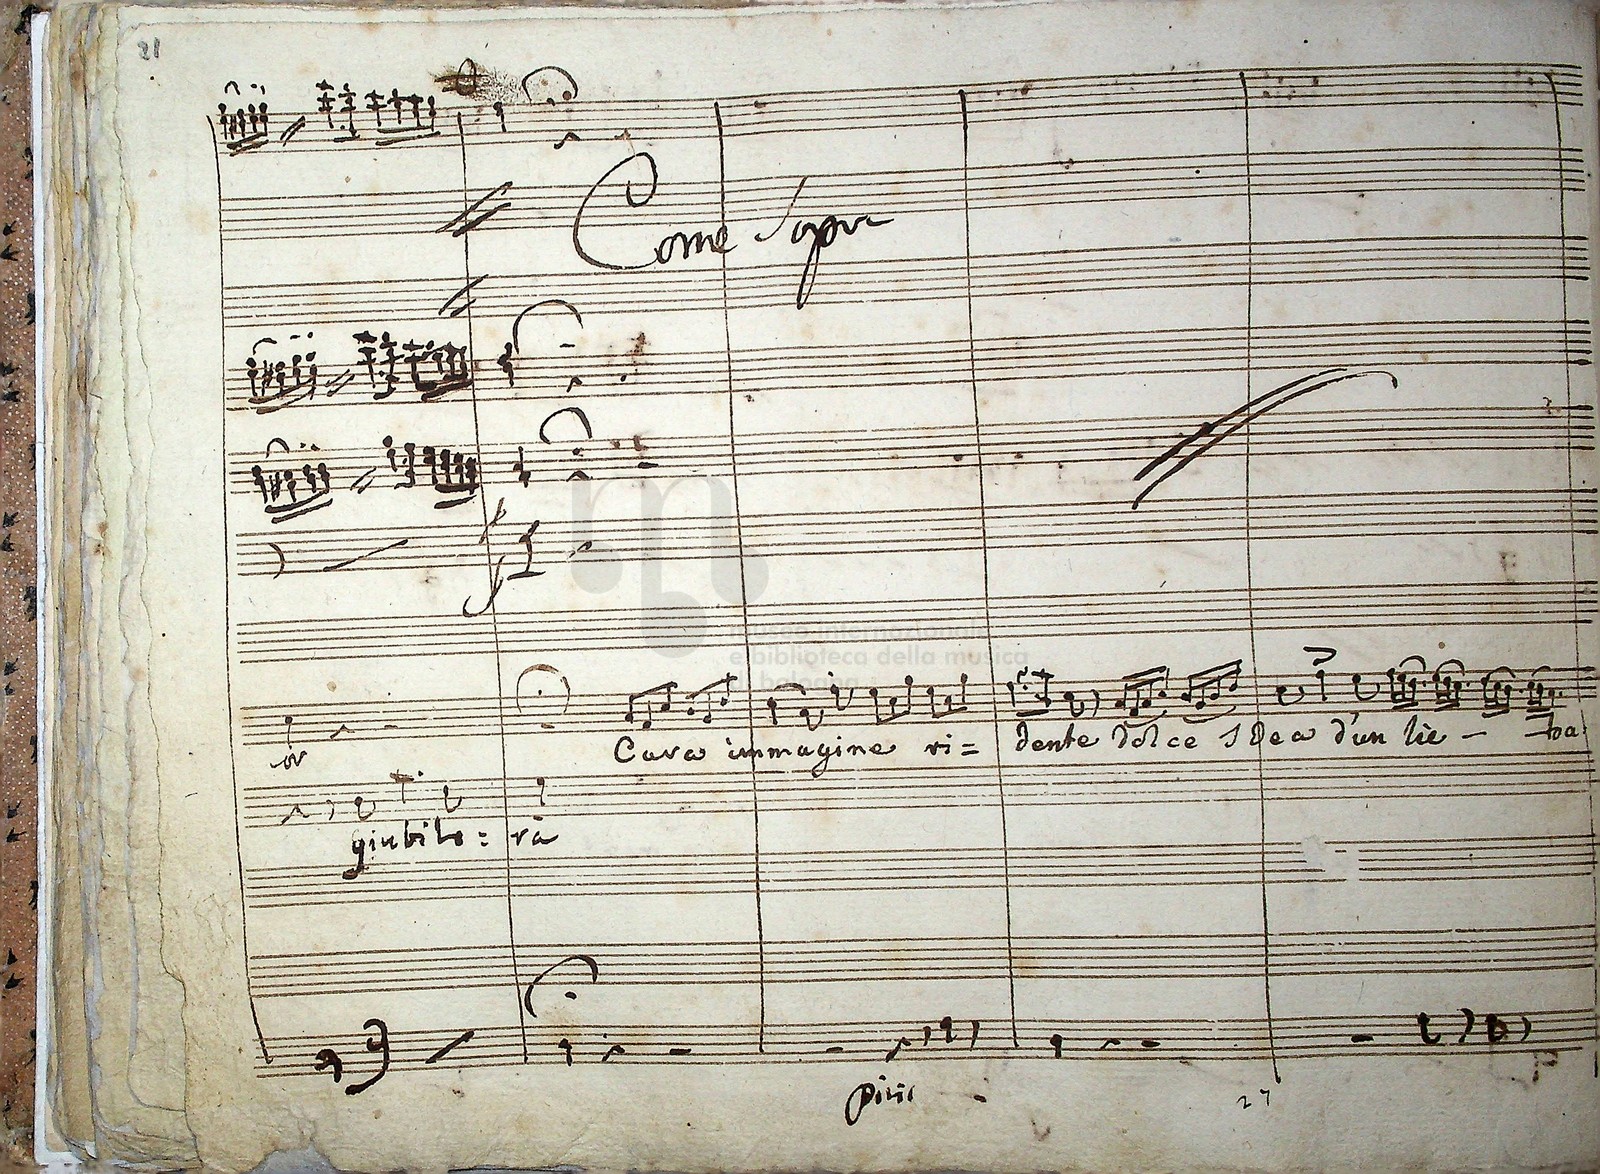 21
Come Sopra
museo internazionale
e biblioteca della musica
bologna
or
Cara immagine ri= dente dolce Idea d'un lie -
giubile: rà
27